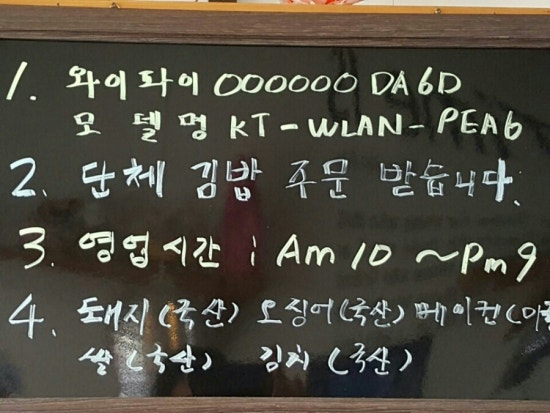 1. 와이파이 000000DA6D
모델명 KT-WLAN-PEA6
2. 단체 김밥 주문 받습니다.
3. 영업시간 : Am 10 ~ Pm 9
4. 돼지(국산) 오징어(국산) 베이컨(미국
쌀(국산) 김치(국산)